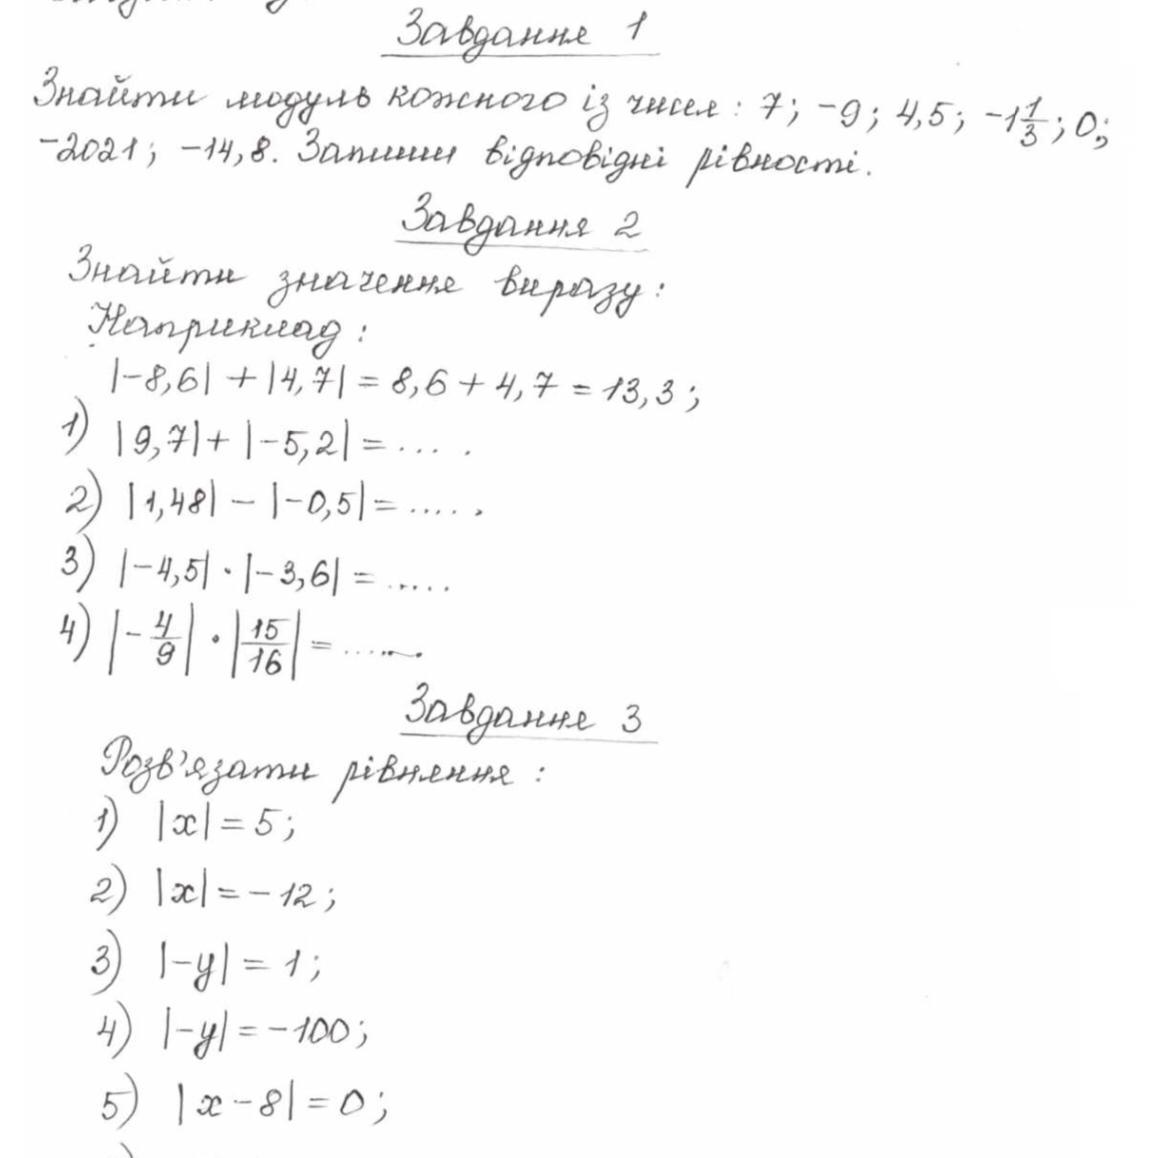 Завдання 1
Знайти модуль кожного із чисел: 7; -9; 4,5; -1 1/3; 0;
-2021; -14,8. Запиши відповідні рівності.
Завдання 2
Знайти значення виразу:
Наприклад:
|-8,6| + |4,7| = 8,6 + 4,7 = 13,3;
1) |9,7| + |-5,2| = .... .
2) |1,48| - |-0,5| = ..... .
3) |-4,5| · |-3,6| = .....
4) |-4/9| · |15/16| = .......
Завдання 3
Розв'язати рівняння:
1) |x| = 5;
2) |x| = -12;
3) |-y| = 1;
4) |-y| = -100;
5) |x - 8| = 0;